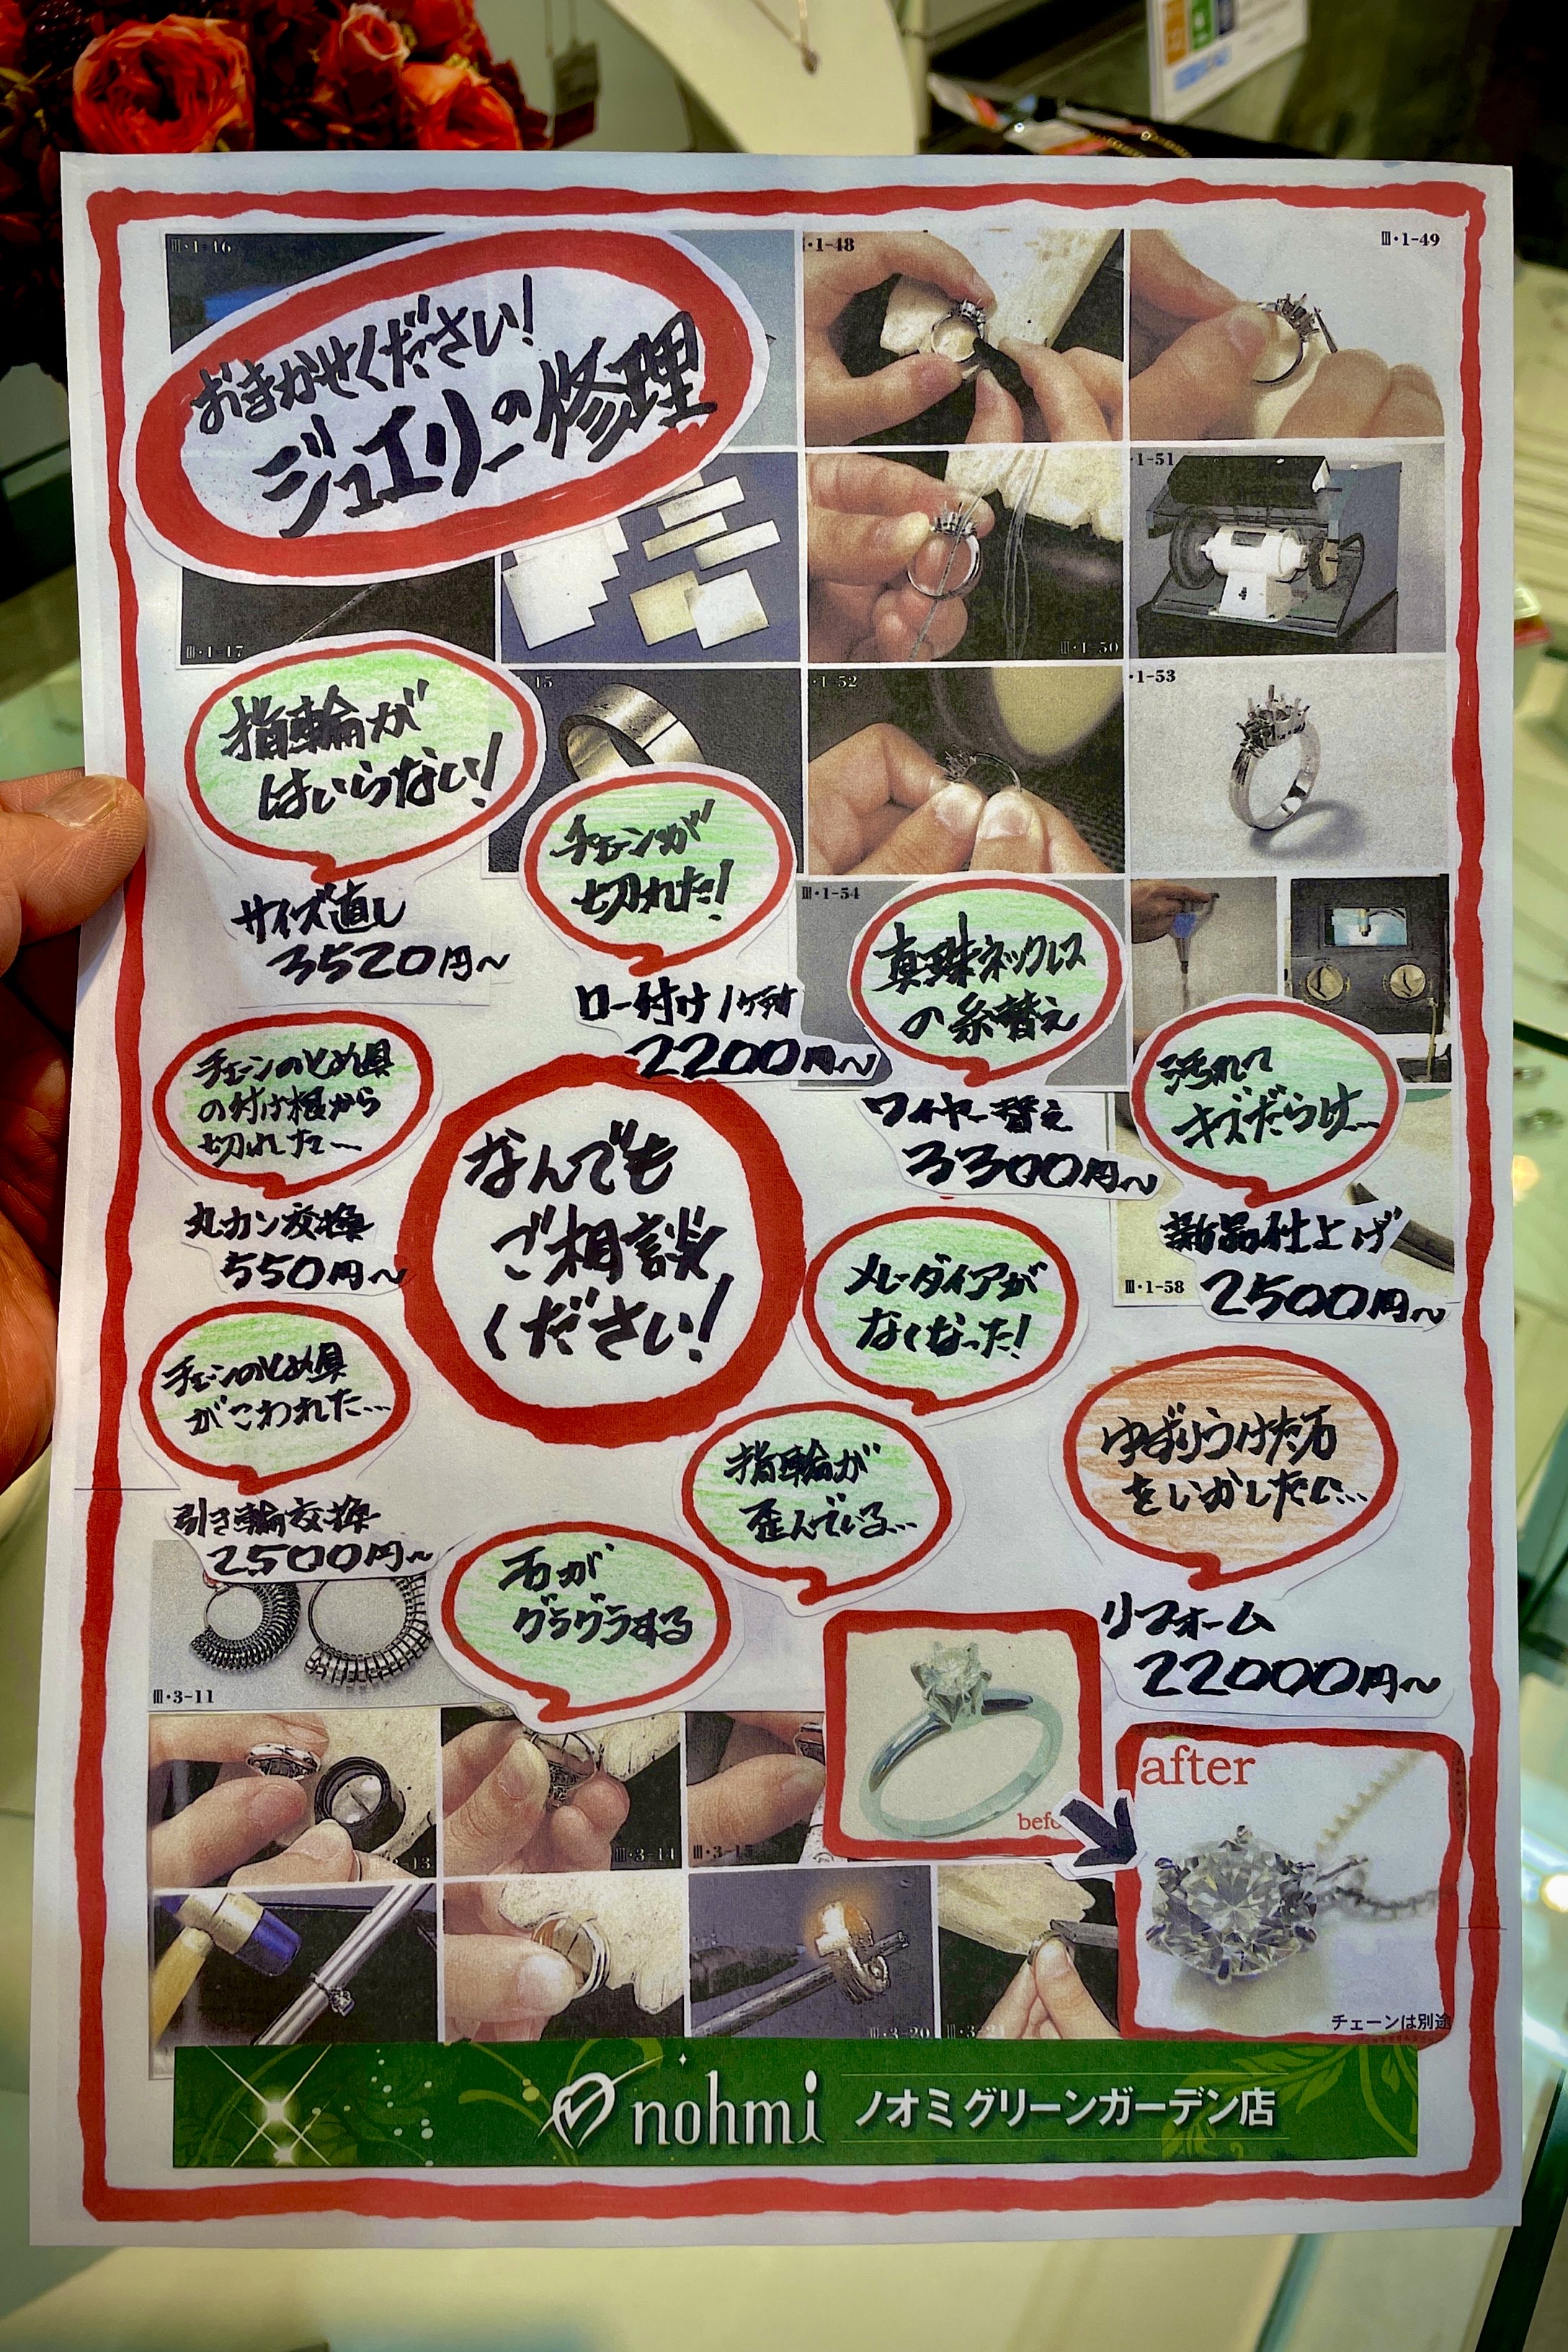 Ⅲ・1-16
・1-48
Ⅲ・1-49
おまかせください!
ジュエリーの修理
・1-51
Ⅲ・1-17
Ⅲ・1-50
指輪が
はいらない!
サイズ直し
3520円〜
・1-52
・1-53
チェーンが
切れた!
ロー付け1ヶ所
2200円〜
Ⅲ・1-54
真珠ネックレス
の糸替え
ワイヤー替え
3300円〜
汚れて
キズだらけ…
新品仕上げ
2500円〜
Ⅲ・1-58
チェーンのとめ具
の付け根から
切れた〜
丸カン交換
550円〜
なんでも
ご相談
ください!
メレーダイアが
なくなった!
チェーンのとめ具
がこわれた…
引き輪交換
2500円〜
指輪が
歪んでいる…
ゆずりうけた石
をいかしたい…
リフォーム
22000円〜
石が
グラグラする
Ⅲ・3-11
3-13
Ⅲ・3-14
Ⅲ・3-15
befo
after
チェーンは別途
Ⅲ・3-20
Ⅲ・3-21
nohmi ノオミグリーンガーデン店